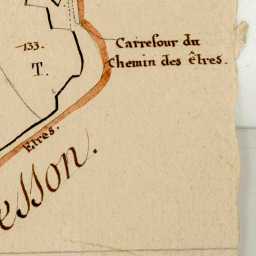 133.
T.
Carrefour du
Chemin des êtres.
Etres.
esson.